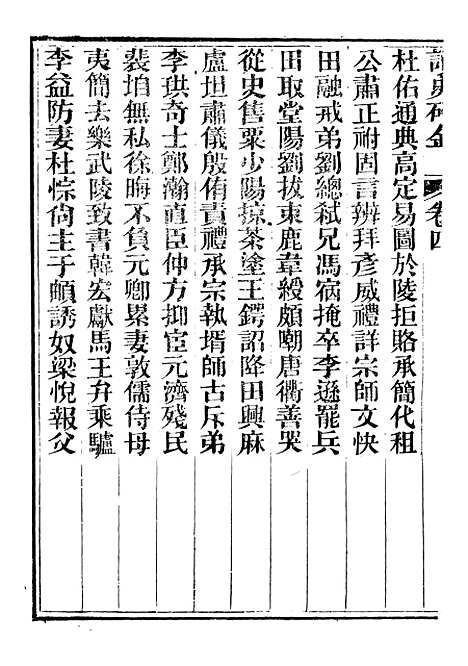 讀史碎金 卷四
杜佑通典高定易圖於陵拒賂承簡代租
公肅正祔固言辨拜彥威禮詳宗師文快
田融戒弟劉總弒兄馮宿掩卒李遜罷兵
田取堂陽劉拔東鹿韋綬頗嘲唐衢善哭
從史售粟少陽掠茶塗王鍔詔降田興麻
盧坦肅儀殷侑責禮承宗執壻師古斥弟
李珙奇士鄭瀚直臣仲方抑宦元濟殘民
裴垍無私徐晦不負元卿累妻敦儒侍母
夷簡去樂武陵致書韓宏獻馬王弁乘驢
李益防妻杜悰尙主于頔誘奴梁悅報父